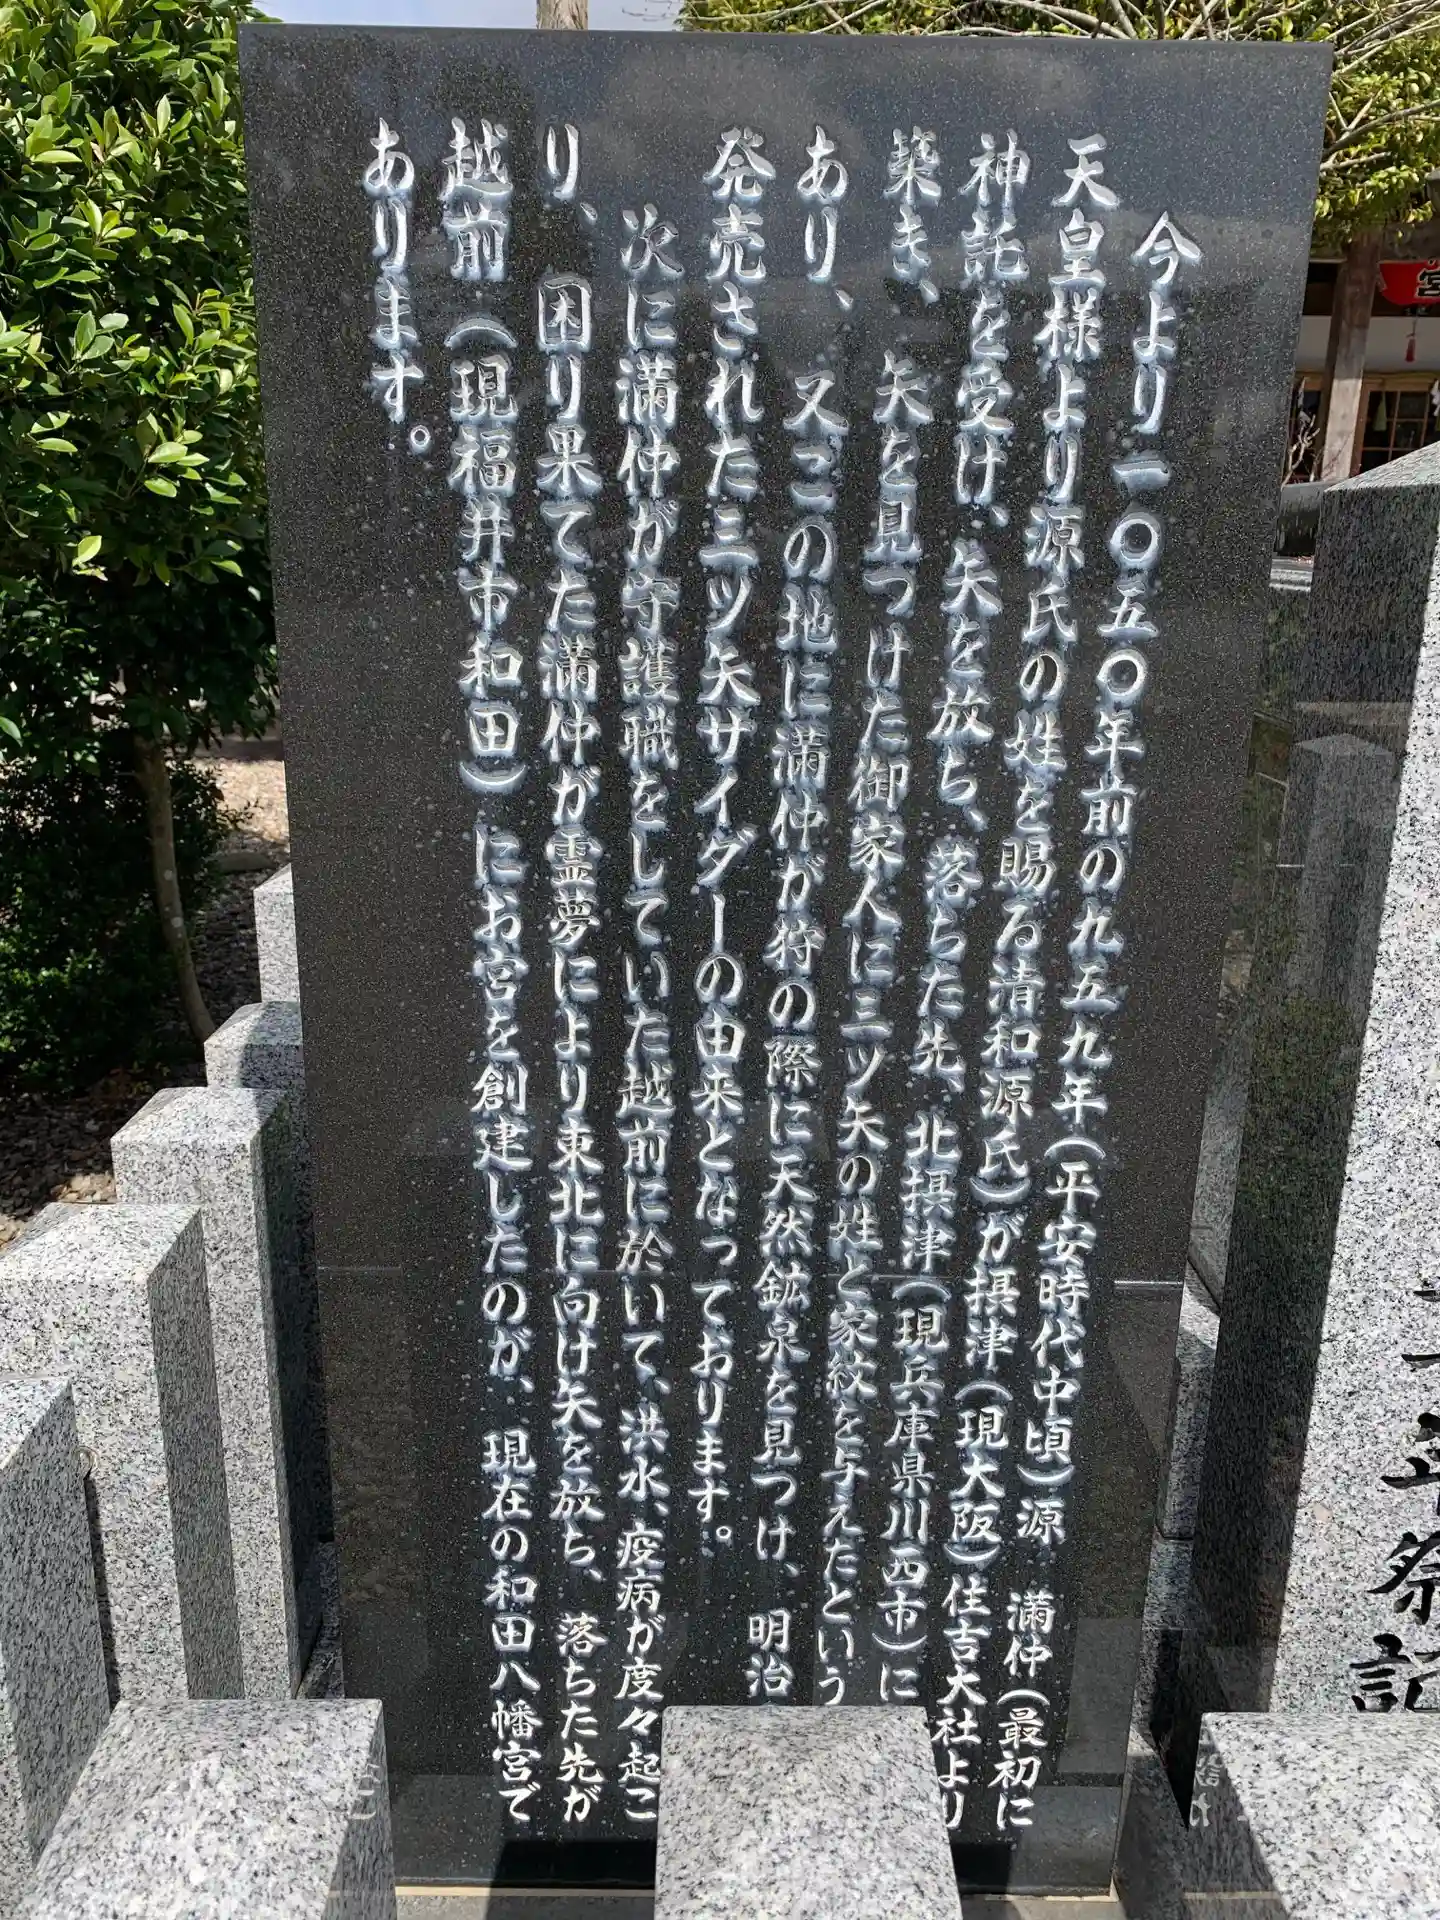 今より一〇五〇年前の九五九年（平安時代中頃）源　満仲（最初に
天皇様より源氏の姓を賜る清和源氏）が摂津（現大阪）住吉大社より
神託を受け、矢を放ち、落ちた先、北摂津（現兵庫県川西市）に
築き、矢を見つけた御家人に三ツ矢の姓と家紋を与えたという
あり、又この地に満仲が狩の際に天然鉱泉を見つけ、明治
発売された三ツ矢サイダーの由来となっております。
次に満仲が守護職をしていた越前に於いて、洪水、疫病が度々起こ
り、困り果てた満仲が霊夢により東北に向け矢を放ち、落ちた先が
越前（現福井市和田）にお宮を創建したのが、現在の和田八幡宮で
あります。
年祭記
宮